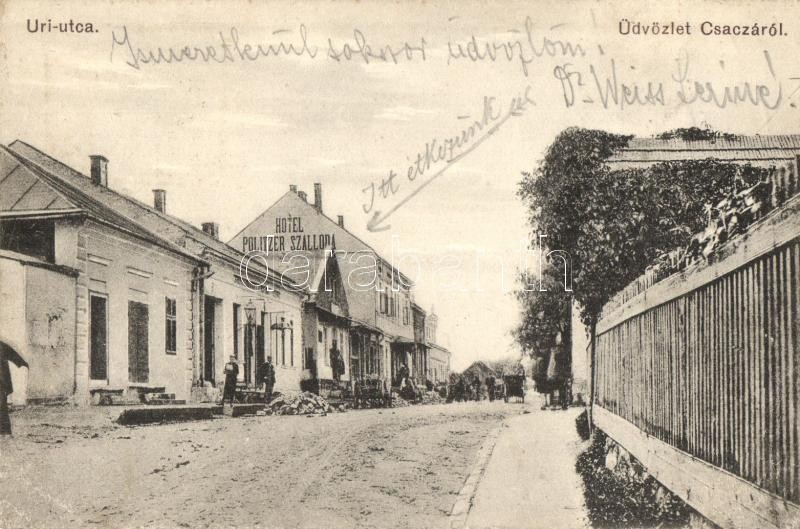 Uri-utca.
Üdvözlet Csaczáról.
Ismeretlenül sokszor üdvözlöm!
Dr. Weiss
Itt étkezünk
HOTEL
POLITZER SZALLODA
darabanth